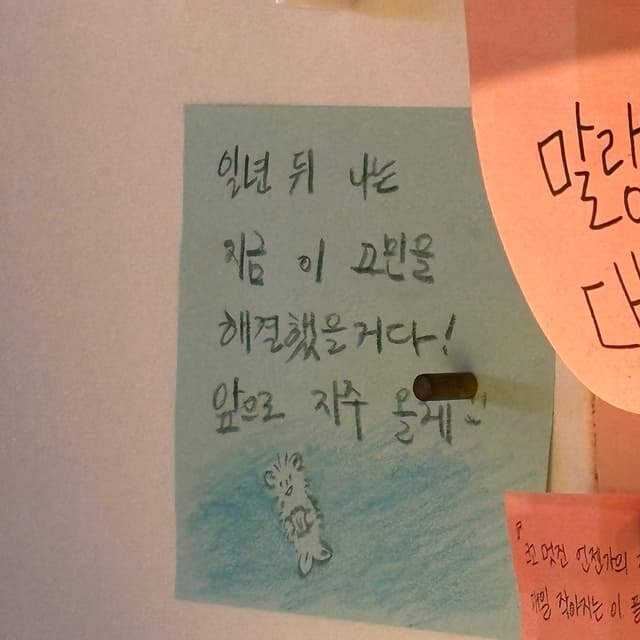 일년 뒤 나는
지금 이 고민을
해결했을거다!
앞으로 자주 올게
말랑
대
꼬 멋진 언젠가의
매일 작아지는 이